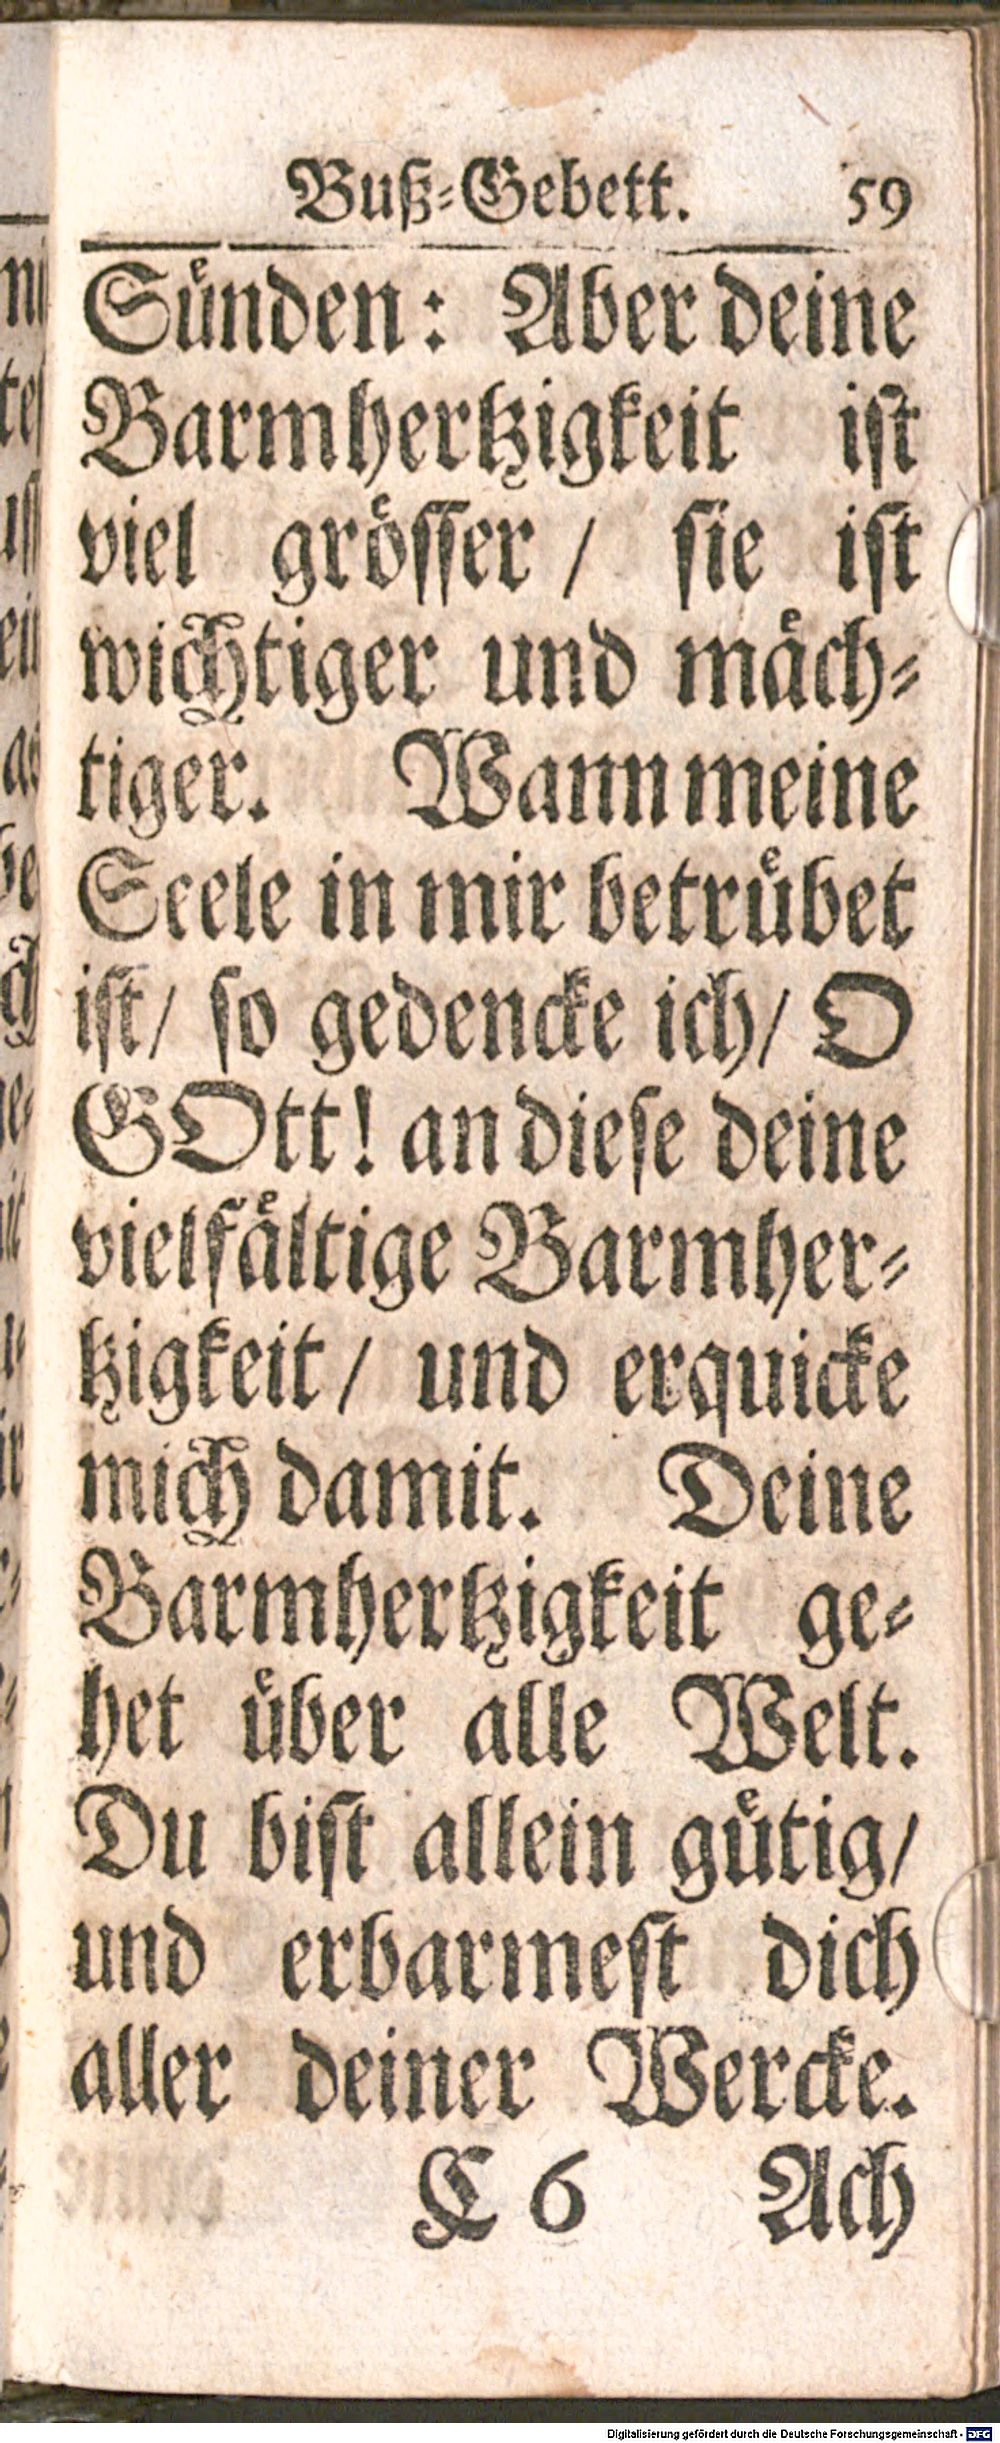 Buß-Gebett. 59
Sünden: Aber deine
Barmhertzigkeit ist
viel grösser / sie ist
wichtiger und mäch-
tiger. Wann meine
Seele in mir betrübet
ist / so gedencke ich / O
GOtt! an diese deine
vielfältige Barmher-
tzigkeit / und erquicke
mich damit. Deine
Barmhertzigkeit ge-
het über alle Welt.
Du bist allein gütig /
und erbarmest dich
aller deiner Wercke.
C 6 Ach
Digitalisierung gefördert durch die Deutsche Forschungsgemeinschaft - DFG